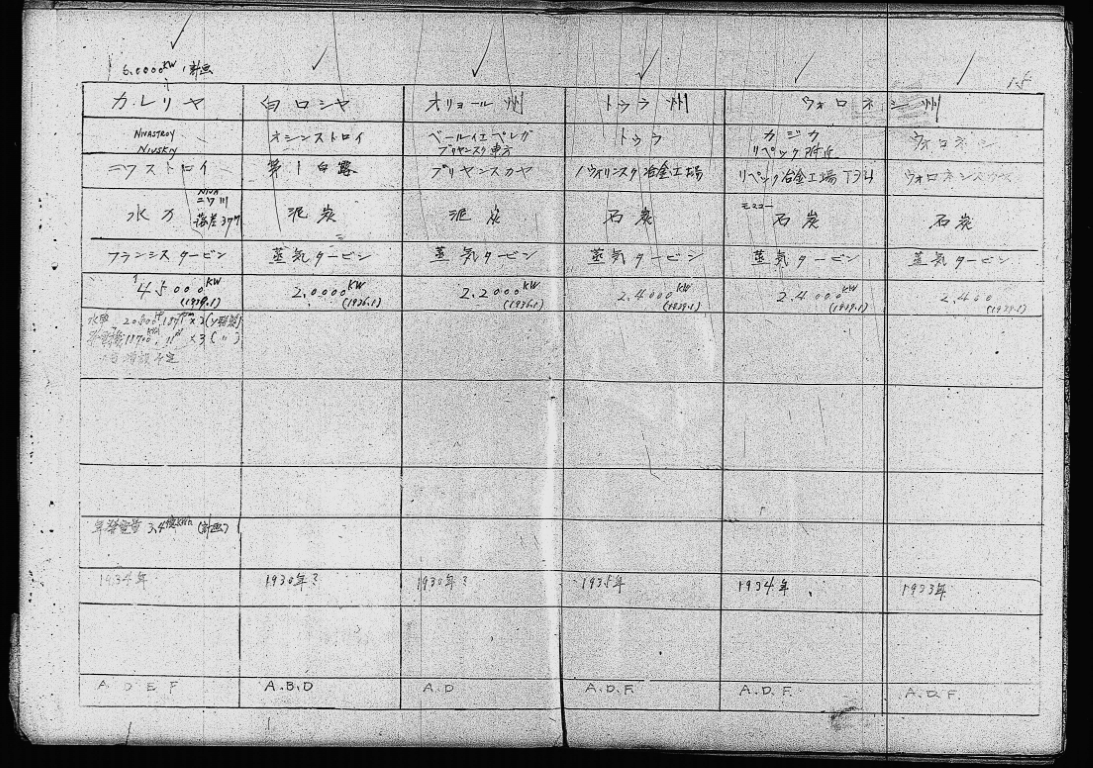 6.0000KW 計画
15
カレリヤ 白ロシヤ オリョール州 トゥラ州 ウォロネシ州
NIVASTROY オシンストロイ ベールィエベレガ トゥラ カジカ ウォロネシ
NIVSKIY ブリヤンスク東方 リペック附近
ニワストロイ 第1白露 ブリヤンスカヤ ノヴィリンスク冶金工場 リペック冶金工場 ウォロネシスカヤ
水力 NIVA
ニワ川
落差37m 泥炭 泥炭 石炭 モスコー 石炭 石炭
フランシスタービン 蒸気タービン 蒸気タービン 蒸気タービン 蒸気タービン 蒸気タービン
45000KW 2.0000KW 2.2000KW 2.4000KW 2.4000KW 2.400
(1939.1) (1936.1) (1936.1) (1939.1) (1939.1) (1939.1)
増設予定
年発電量 3.4億KWh (計画)
1934年 1930年? 1930年? 1935年 1934年 1933年
A D E F A.B.D A.D A.D.F. A.D.F. A.D.F.